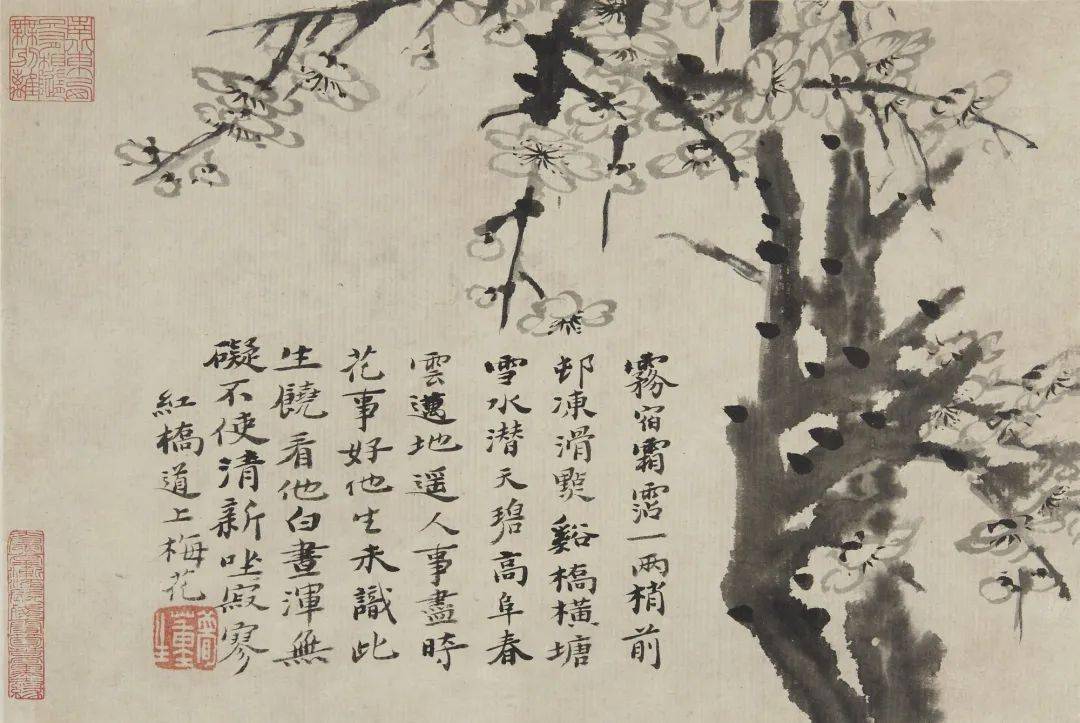 霧宿霜霑一兩梢前
邨凍滑㸃谿橋橫塘
雪水潛天碧高阜春
雲邁地遥人事盡時
花事好他生未識此
生饒看他白晝渾無
礙不使清新吐寂寥
紅橋道上梅花